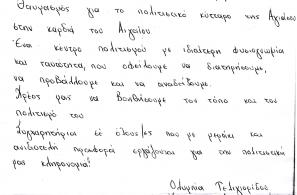 Θαυμασμός για το πολιτιστικό κύτταρο της Αιγαίου
στην καρδιά του Αιγαίου
Ένα κέντρο πολιτισμού με ιδιαίτερη φυσιογνωμία
και ταυτότητα, που οφείλουμε να διατηρήσουμε,
να προβάλλουμε και να αναδείξουμε.
Χρέος μας να βοηθήσουμε τον τόπο και τον
πολιτισμό του
Συγχαρητήρια σε όλους/ες που με μεράκι και
ανιδιοτελή προσφορά εργάζονται για την πολιτιστική
μας κληρονομιά!
Ολυμπία Τελιγιορίδου